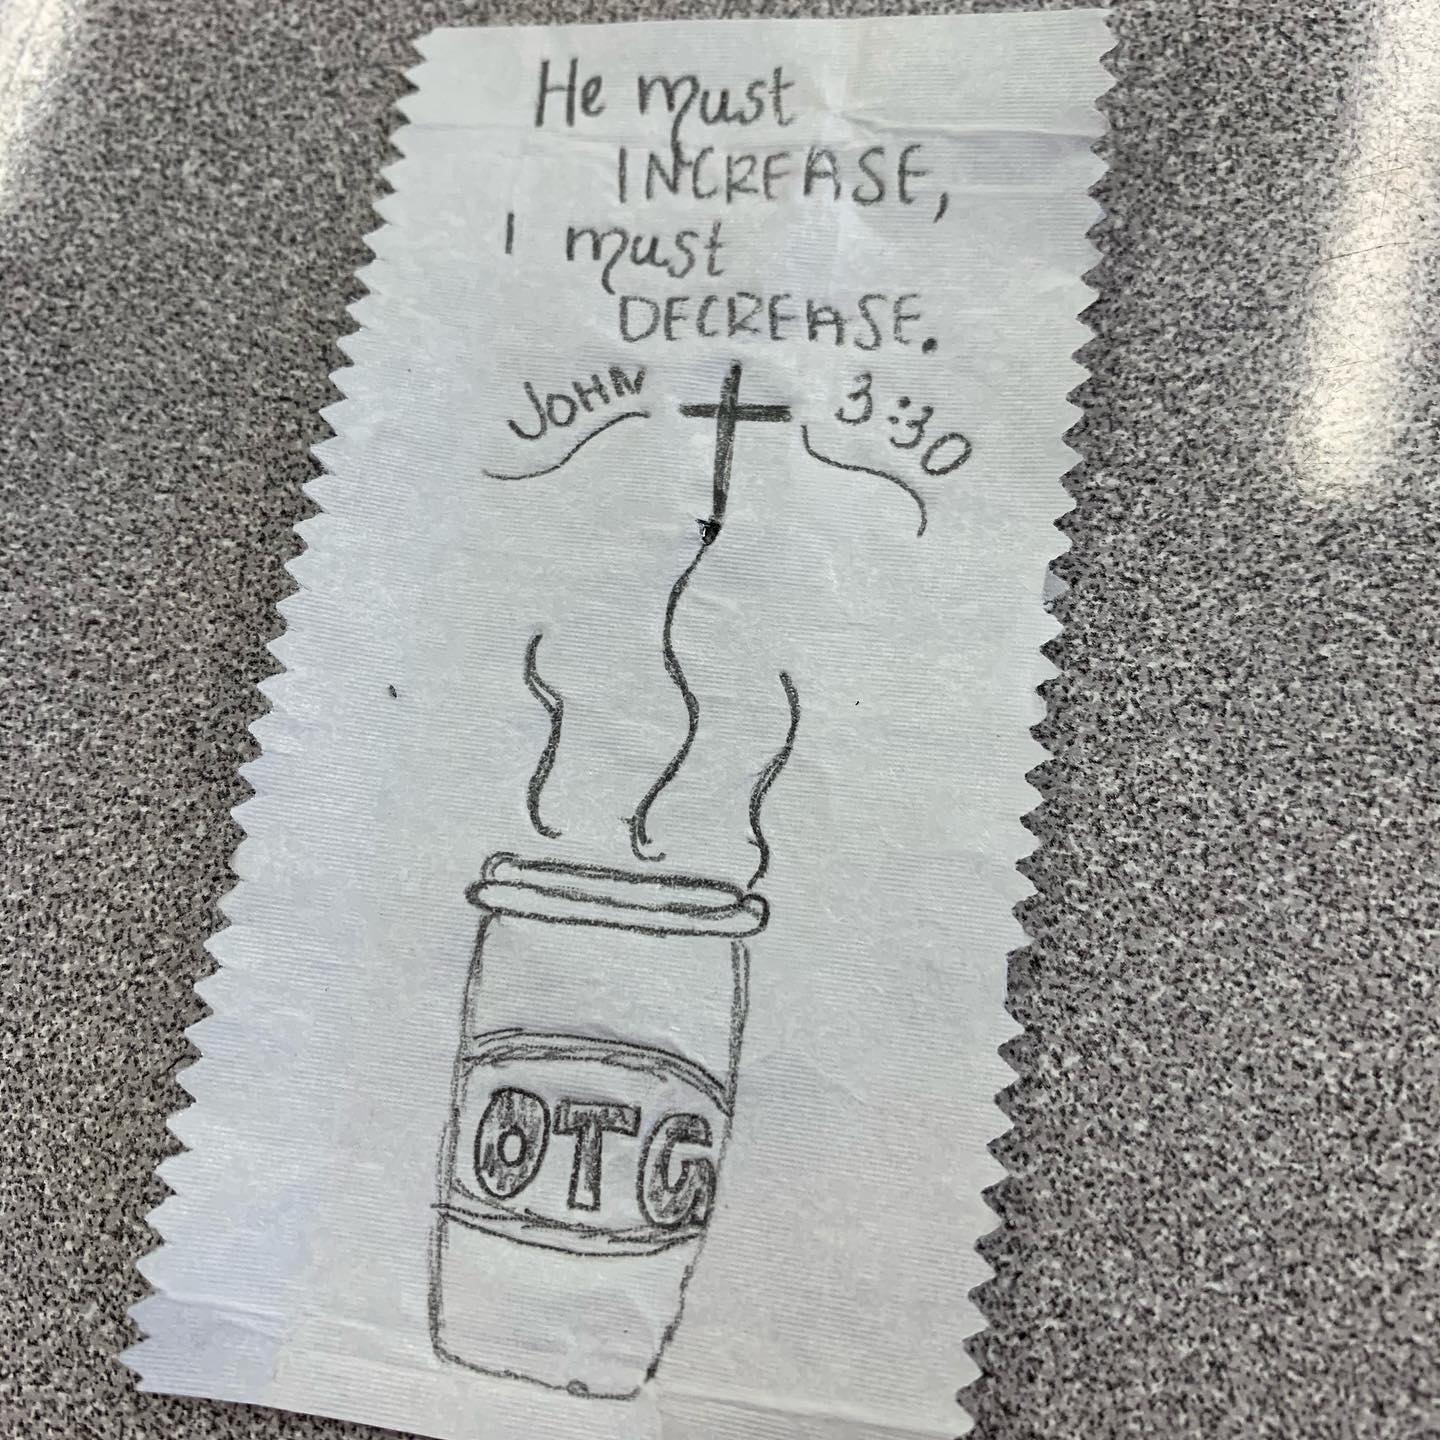 He must
INCREASE,
I must
DECREASE.
JOHN 3:30
OTG